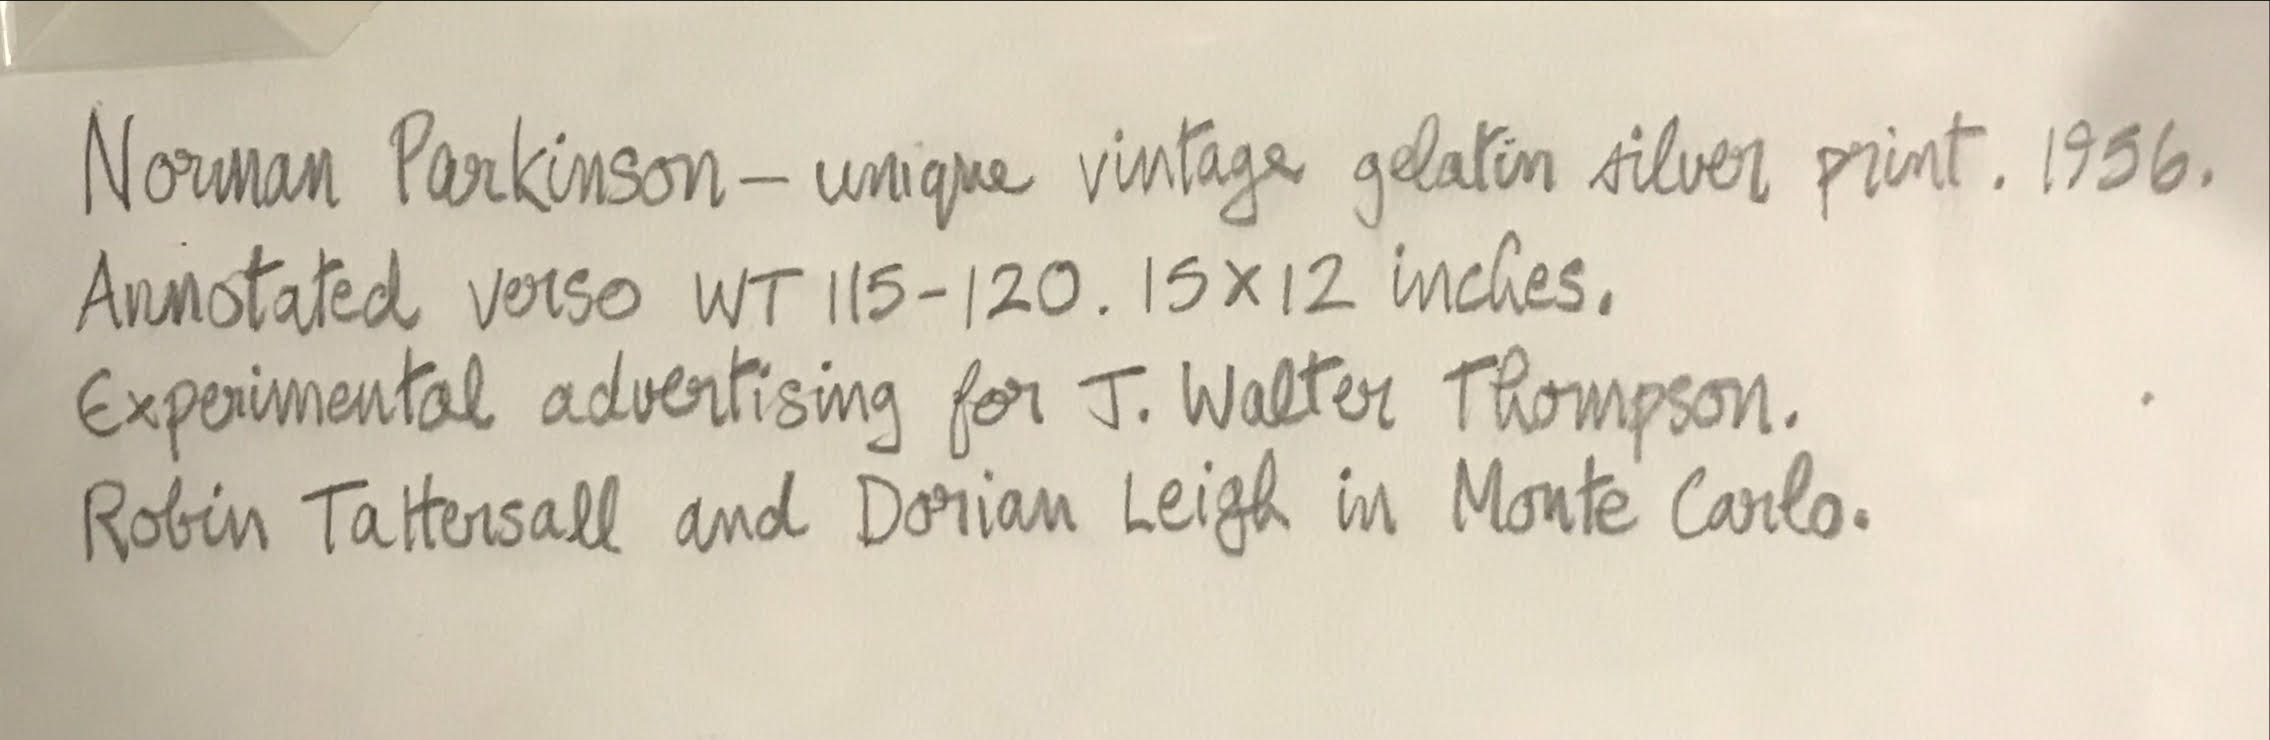 Norman Parkinson – unique vintage gelatin silver print. 1956.
Annotated verso WT 115-120. 15x12 inches.
Experimental advertising for J. Walter Thompson.
Robin Tattersall and Dorian Leigh in Monte Carlo.